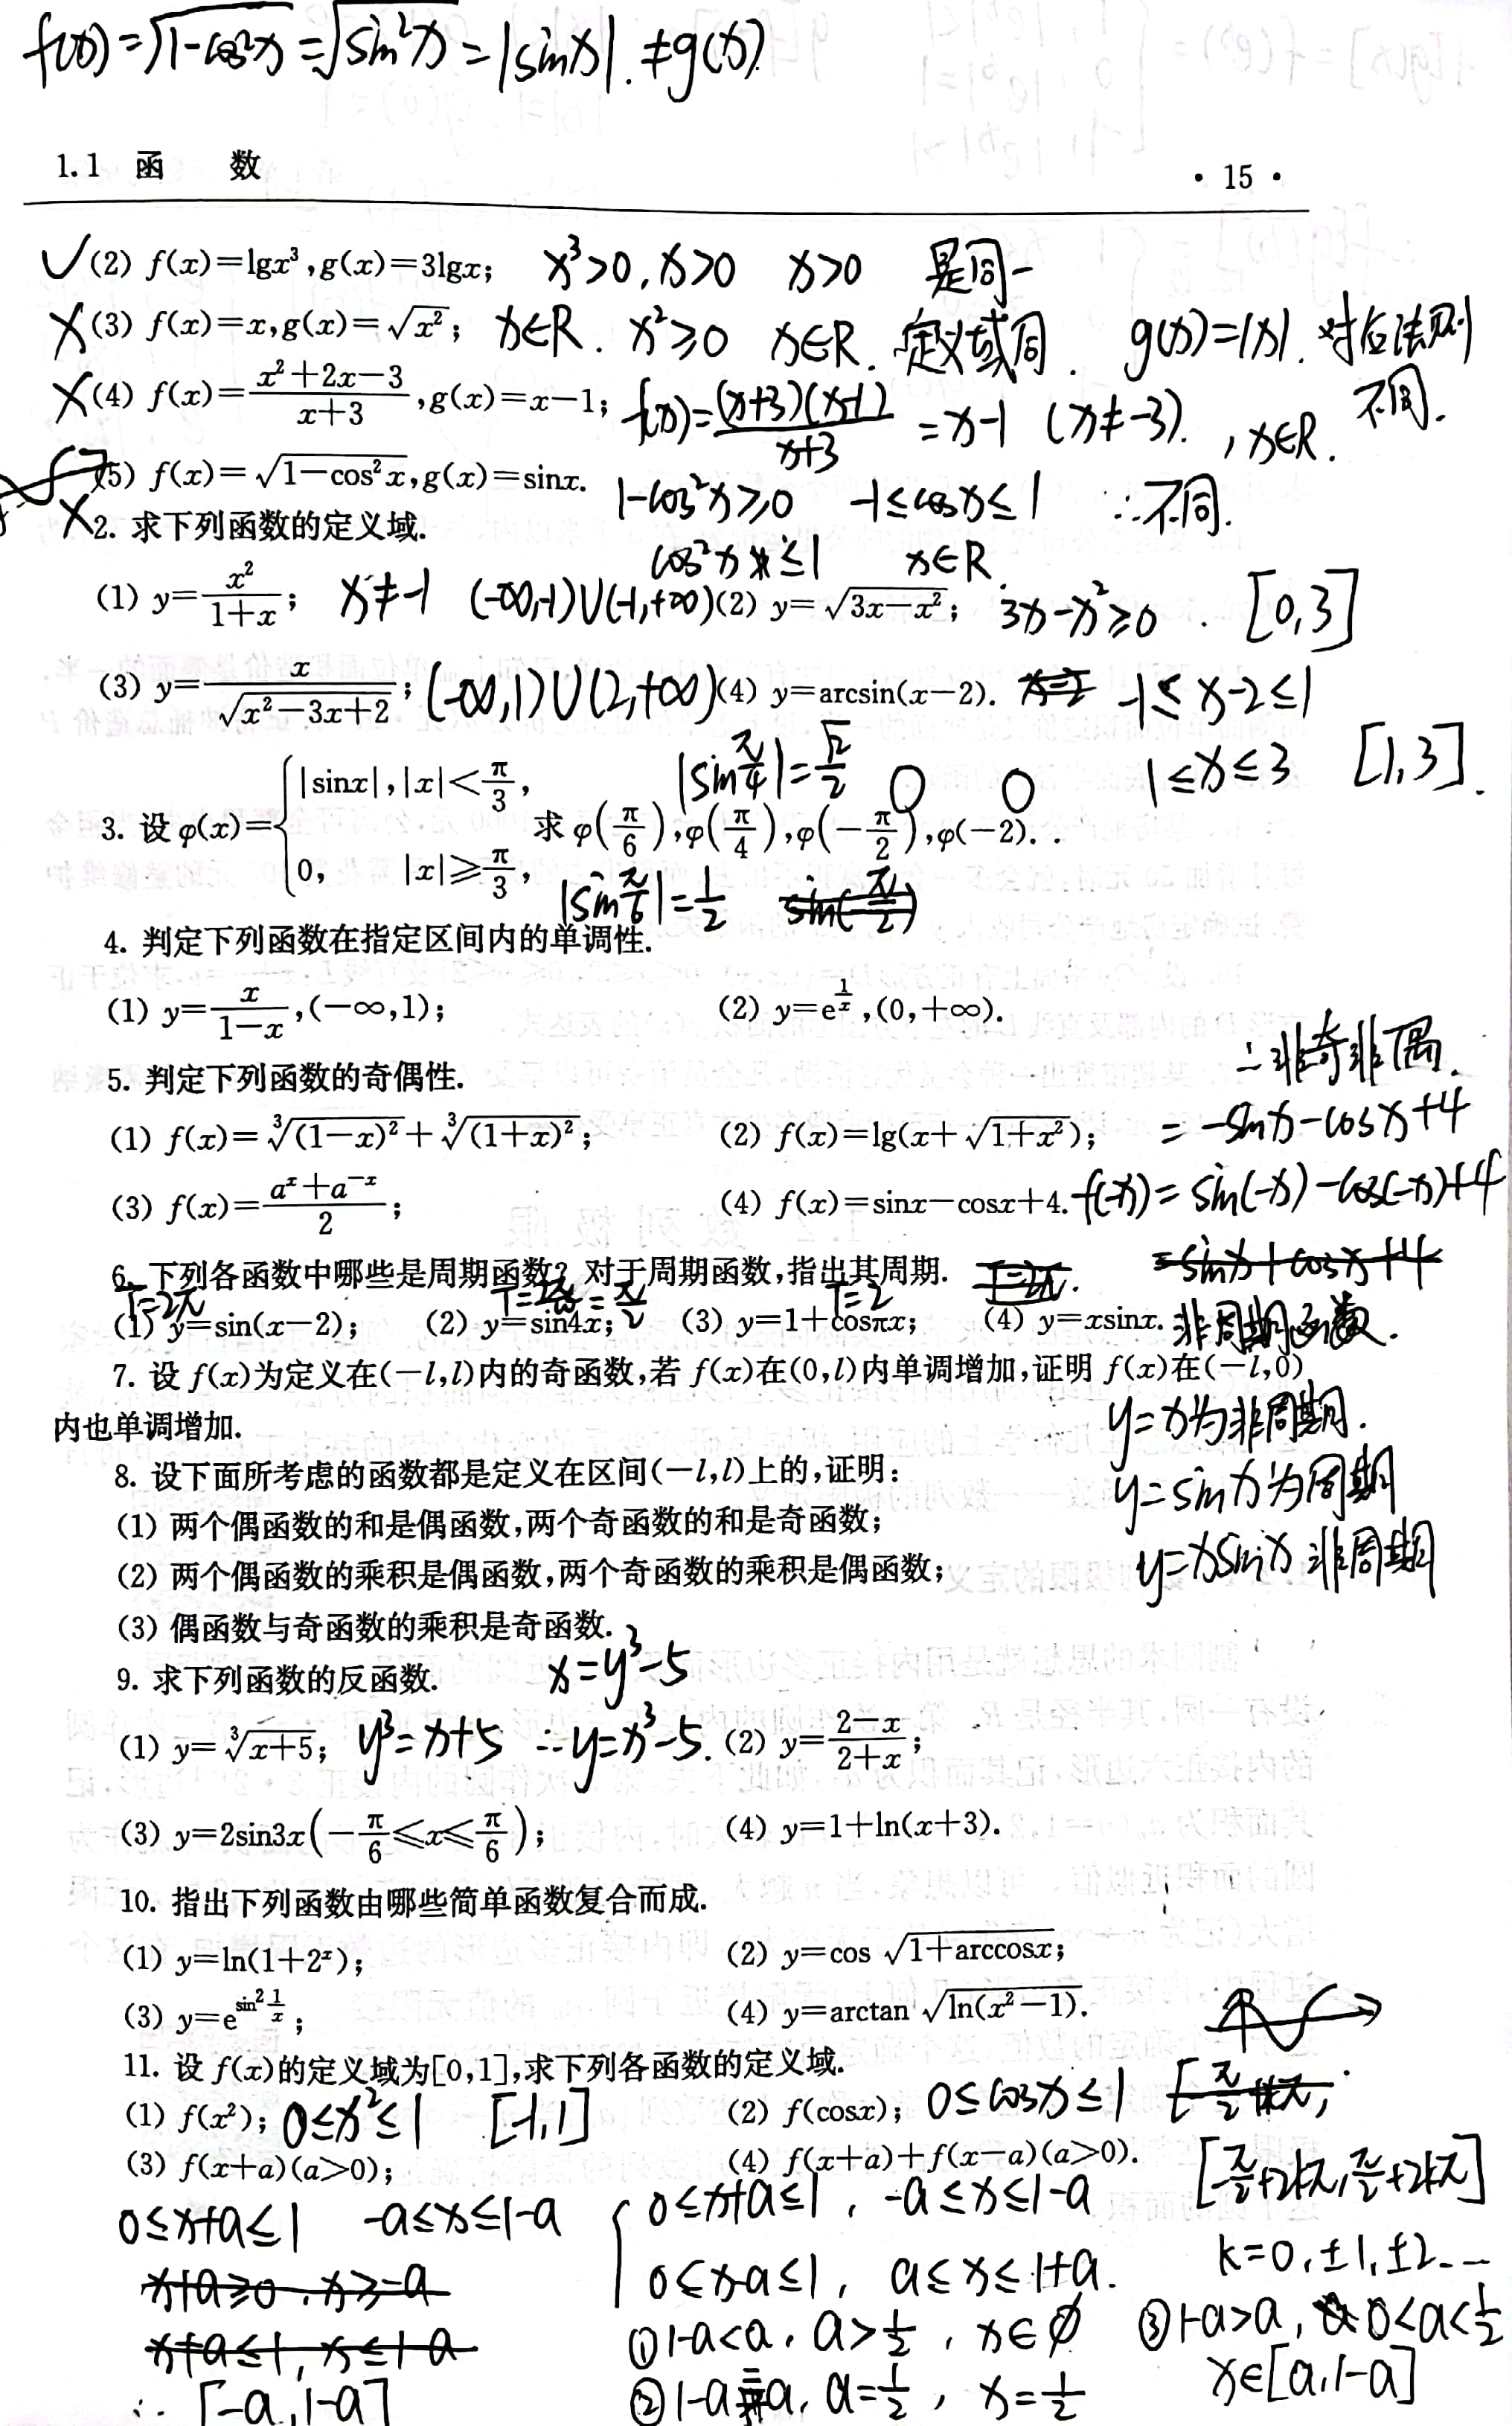 f(x)=√(1-cos²x)=√(sin²x)=|sinx|.≠g(x).
1.1 函 数 · 15 ·
√(2) f(x)=lgx³,g(x)=3lgx; x³>0,x>0 x>0 是同一
×(3) f(x)=x,g(x)=√(x²); x∈R. x²≥0 x∈R. 定义域同. g(x)=|x|. 对应法则
不同.
×(4) f(x)=(x²+2x-3)/(x+3),g(x)=x-1; f(x)=(x+3)(x-1)/(x+3) =x-1 (x≠-3). ,x∈R.
(5) f(x)=√(1-cos²x),g(x)=sinx. 1-cos²x≥0 -1≤cosx≤1 ∴不同.
×2. 求下列函数的定义域. cos²x≤1 x∈R.
(1) y=x²/(1+x); x≠-1 (-∞,-1)∪(-1,+∞) (2) y=√(3x-x²); 3x-x²≥0. [0,3]
(3) y=x/√(x²-3x+2); (-∞,1)∪(2,+∞) (4) y=arcsin(x-2). -1≤x-2≤1
|sin π/4|=√2/2 0 0 1≤x≤3 [1,3].
3. 设φ(x)={|sinx|,|x|<π/3, 0, |x|≥π/3, 求φ(π/6),φ(π/4),φ(-π/2),φ(-2).
|sin π/6|=1/2 sin(-π/2)
4. 判定下列函数在指定区间内的单调性.
(1) y=x/(1-x),(-∞,1); (2) y=e^(1/x),(0,+∞).
∴非奇非偶.
5. 判定下列函数的奇偶性.
(1) f(x)=∛((1-x)²)+∛((1+x)²); (2) f(x)=lg(x+√(1+x²)); =-sinx-cosx+4
(3) f(x)=(a^x+a^(-x))/2; (4) f(x)=sinx-cosx+4. f(-x)=sin(-x)-cos(-x)+4
=sinx+cosx+4
6. 下列各函数中哪些是周期函数? 对于周期函数,指出其周期. T=2π.
T=2π T=2π/ω=π/2 T=2
(1) y=sin(x-2); (2) y=sin4x; (3) y=1+cosπx; (4) y=xsinx. 非周期函数.
7. 设 f(x)为定义在(-l,l)内的奇函数,若 f(x)在(0,l)内单调增加,证明 f(x)在(-l,0)
内也单调增加. y=x为非周期.
8. 设下面所考虑的函数都是定义在区间(-l,l)上的,证明: y=sinx为周期
(1) 两个偶函数的和是偶函数,两个奇函数的和是奇函数;
(2) 两个偶函数的乘积是偶函数,两个奇函数的乘积是偶函数; y=xsinx非周期
(3) 偶函数与奇函数的乘积是奇函数.
9. 求下列函数的反函数. x=y³-5
(1) y=∛(x+5); y³=x+5 ∴y=x³-5. (2) y=(2-x)/(2+x);
(3) y=2sin3x(-π/6≤x≤π/6); (4) y=1+ln(x+3).
10. 指出下列函数由哪些简单函数复合而成.
(1) y=ln(1+2^x); (2) y=cos √(1+arccosx);
(3) y=e^(sin²(1/x)); (4) y=arctan √(ln(x²-1)).
11. 设 f(x)的定义域为[0,1],求下列各函数的定义域.
(1) f(x²); 0≤x²≤1 [-1,1] (2) f(cosx); 0≤cosx≤1
(3) f(x+a)(a>0); (4) f(x+a)+f(x-a)(a>0). [-π/2+2kπ,π/2+2kπ]
0≤x+a≤1 -a≤x≤1-a { 0≤x+a≤1, -a≤x≤1-a
k=0,±1,±2--
x+a≥0,x≥-a 0≤x-a≤1, a≤x≤1+a.
x+a≤1,x≤1-a ①1-a<a,a>1/2,x∈∅ ③1-a>a,0<a<1/2
∴[-a,1-a] ②1-a=a,a=1/2,x=1/2 x∈[a,1-a]